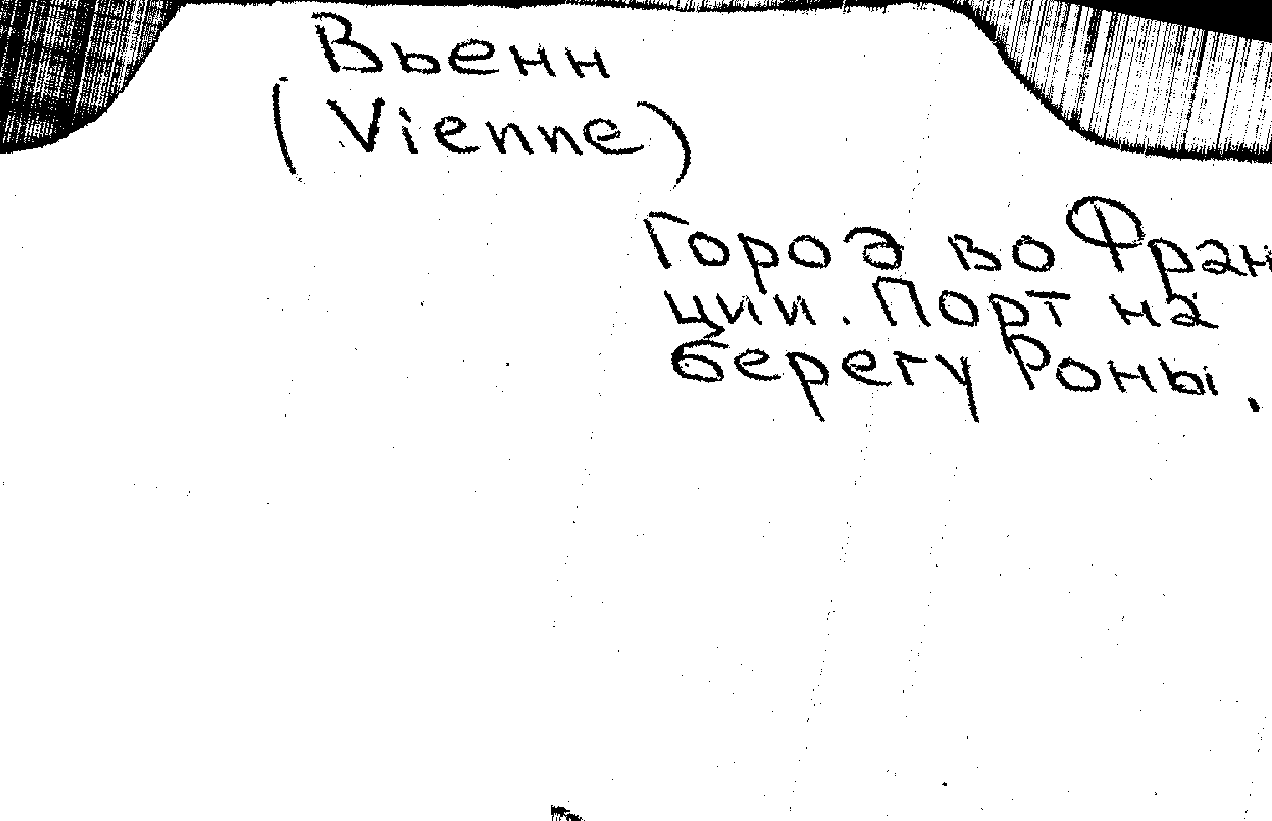 Вьенн
(Vienne)
Город во Фран
ции. Порт на
берегу Роны.